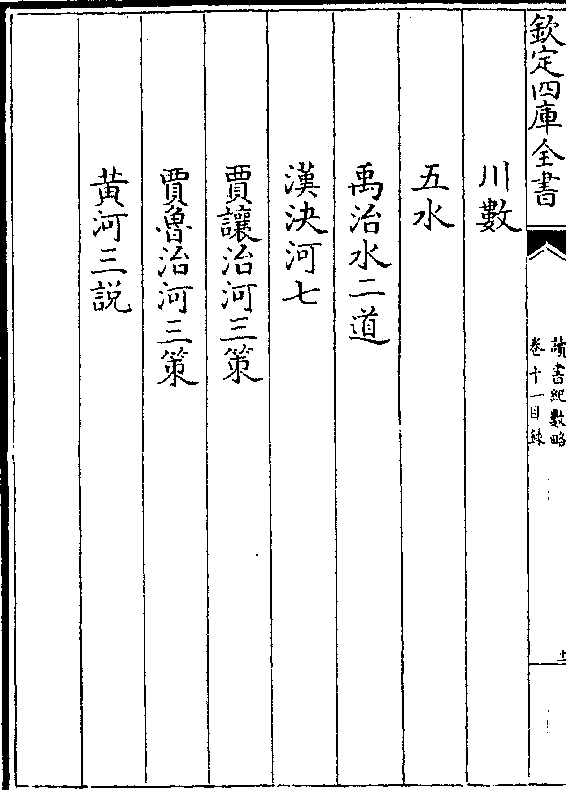 欽定四庫全書
讀書紀數略
卷十一目錄
川數
五水
禹治水二道
漢決河七
賈讓治河三策
賈魯治河三策
黃河三説